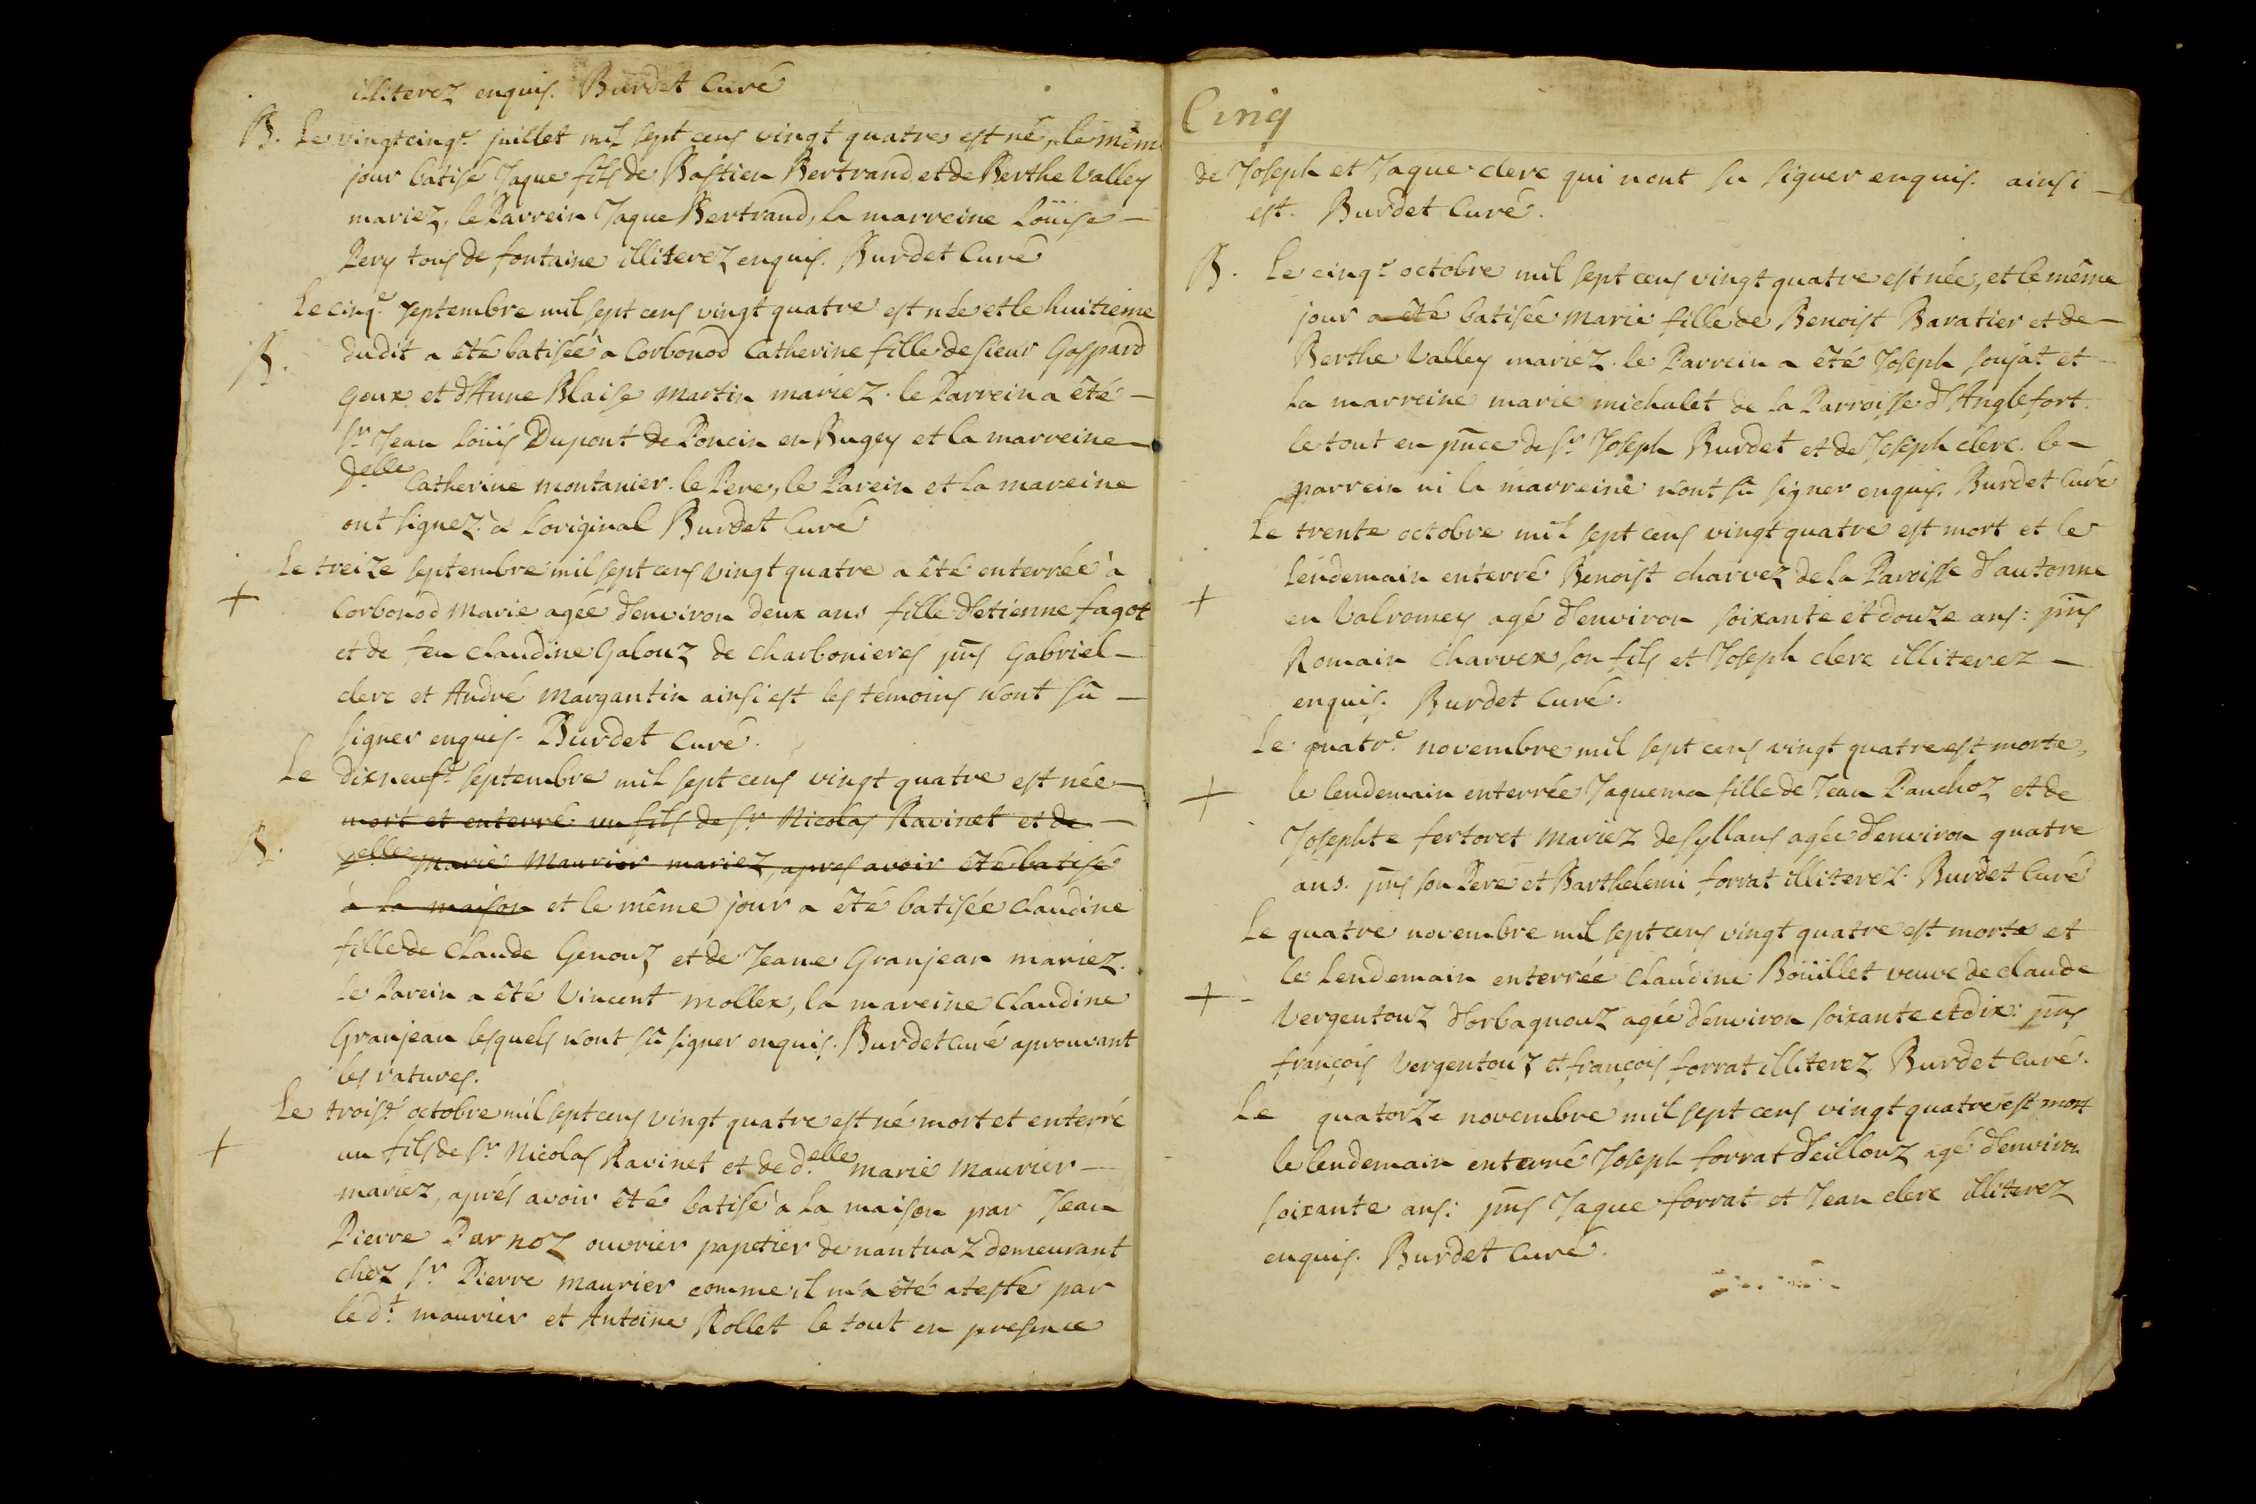 illiterez enquis. Burdet Curé
B. Le vingtcinq.e juillet mil sept cens vingt quatre est né, le mêm
jour batisé Jaque fils de Bastien Bertrand et de Berthe Valley
mariez, le Parrein Jaque Bertrand, la marreine Loüise —
Pery tous de fontaine illiterez enquis. Burdet Curé
Le cinq.e septembre mil sept cens vingt quatre est née et le huitieme
B. dudit a été batisée à Corbonod Catherine fille de sieur Gaspard
Goux et d'Anne Blaise Martin mariez. le Parrein a été —
Sr. Jean Loüis Dupont de Poncin en Bugey et la marreine —
D.elle Catherine montanier. le Pere, le Parein et la mareine
ont signez à L'original Burdet Curé
Le treize septembre mil sept cens vingt quatre a été enterrée à
+ Corbonod Marie agée d'environ deux ans fille d'etienne fagot
et de feu Claudine Galouz de charbonieres pñs Gabriel —
clerc et André Margantin ainsi est les témoins n'ont sû —
signer enquis. Burdet Curé.
Le dixneuf.e septembre mil sept cens vingt quatre est née —
mort et enterré un fils de Sr. Nicolas Ravinet et de —
B. D.elle Marie Maurier mariez, apres avoir été batisé
à la maison et le même jour a été batisée Claudine
fille de Claude Genouz et de Jeane Granjean mariez.
Le Parein a été Vincent mollex, la mareine Claudine
Granjean lesquels n'ont sû signer enquis. Burdet curé aprouvant
les ratures.
Le trois.e octobre mil sept cens vingt quatre est né mort et enterré
+ un fils de Sr. Nicolas Ravinet et de d.elle Marie Maurier —
mariez, aprés avoir été batisé à la maison par Jean
Pierre Parnoz ouvrier papetier de nantuaz demeurant
chez Sr. Pierre Maurier comme il m'a été atesté par
le d.t maurier et Antoine Rollet le tout en presence
Cinq
de Joseph et Jaque clerc qui n'ont su signer enquis. ainsi —
est. Burdet Curé.
B. Le cinq.e octobre mil sept cens vingt quatre est née, et le même
jour a été batisée Marie fille de Benoist Baratier et de —
Berthe Valley mariez. le Parrein a été Joseph soujat et —
la marreine marie michalet de la Parroisse d'Anglefort.
le tout en pñce de Sr. Joseph Burdet et de Joseph clerc. le —
parrein ni la marreine n'ont sû signer enquis. Burdet Curé
Le trente octobre mil sept cens vingt quatre est mort et le
Lendemain enterré Benoist charvez de la Paroisse d'autonne
+ en Valromey agé d'environ soixante et douze ans: pñs
Romain Charvex son fils et Joseph clerc illiterez —
enquis. Burdet Curé.
Le quatr.e novembre mil sept cens vingt quatre est morte,
+ le lendemain enterrée Jaquema fille de Jean Pauchoz et de
Josephte fertoret mariez de syllans agée d'environ quatre
ans. pñs son Pere et Barthelemi forrat illiterez. Burdet Curé
Le quatre novembre mil sept cens vingt quatre est morte et
le Lendemain enterrée Claudine Boüillet veuve de Claude
+ Vergentouz d'orbagnouz agée d'environ soixante et dix: pñs
françois Vergentouz et françois forrat illiterez Burdet Curé.
Le quatorze novembre mil sept cens vingt quatre est mort
le lendemain enterré Joseph forrat d'eillouz agé d'environ
soixante ans: pñs Jaque forrat et Jean clerc illiterez
enquis. Burdet Curé.